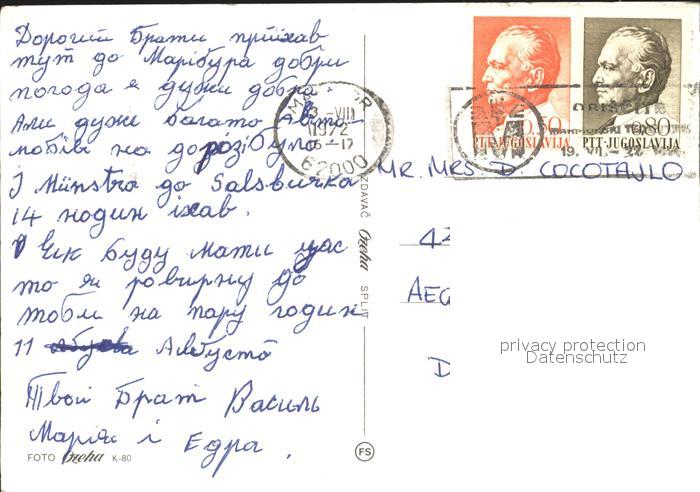 Дорогий Брати приїхав
тут до Марібура добри
погода я дужи добра.
Али дужи богато Авто-
мобів на дорозі було
З Münstra до Salsburka
14 нодин їхав.
Чик буду мати час
то я ровирну до
тоби на пару годин
11 Августо
Твой Брат Василь
Марія і Едра.
FOTO Ozeha K-80
IZDAVAČ Ozeha SPLIT
FS
MARIBOR
-VIII
1972
16-17
62000
0.50
PTT-JUGOSLAVIJA
0.80
PTT-JUGOSLAVIJA
OBIŠČITE
19. VII.-
MR. MRS D. COCOTAJLO
42
AEG
D
privacy protection
Datenschutz